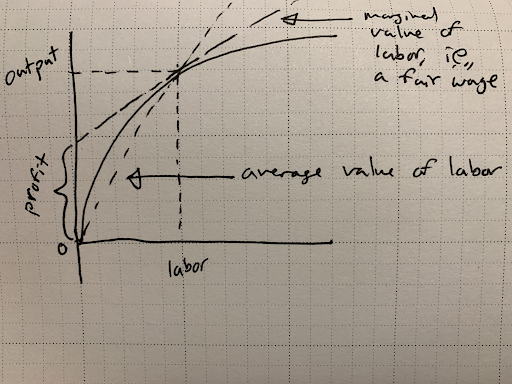 marginal
value of
labor, ie.,
a fair wage
output
average value of labor
profit
0
labor